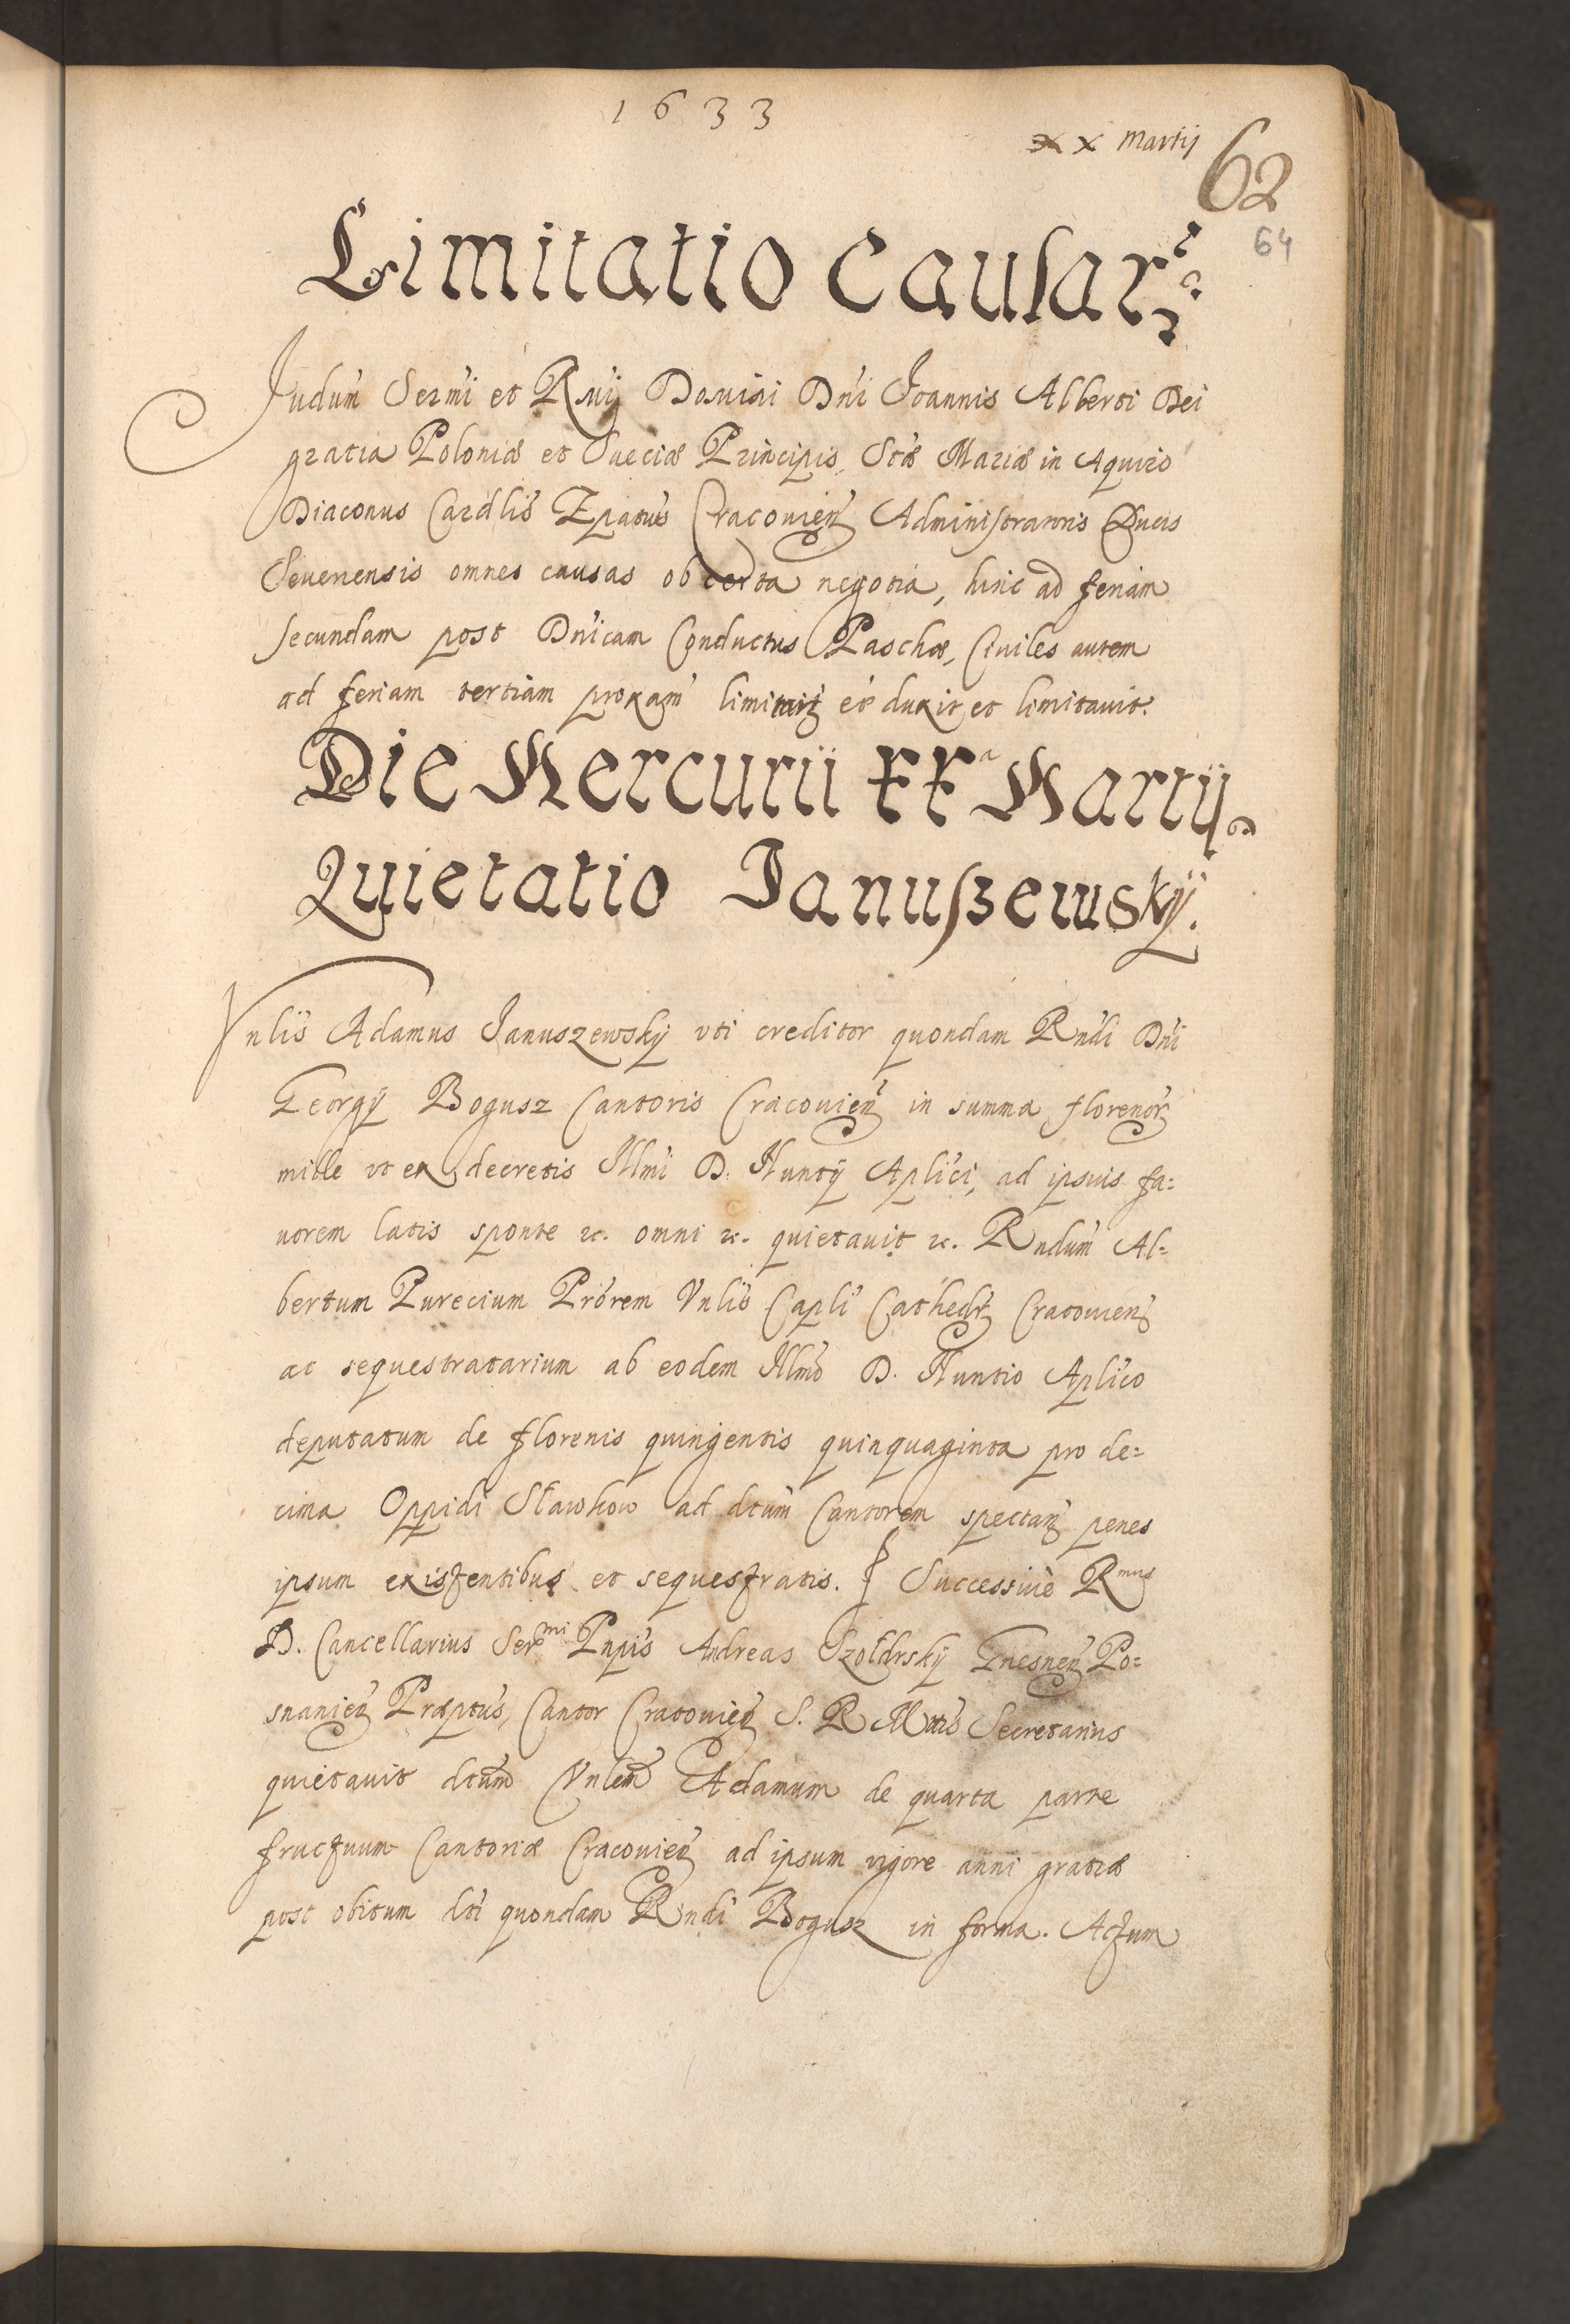 1633
x x Martij
62
64
Limitatio Causar
Iudum Sermi et Rmi Domini Dni Joannis Alberti Dei
gratia Poloniæ et Sueciæ Principis, Stæ Mariæ in Aquiro
Diaconus Cardlis Epatus Cracouien Administratoris Ducis
Seueriensis omnes causas ob certa negotia, hinc ad feriam
secundam post Dnicam Conductus Paschæ, Ciuiles autem
ad feriam tertiam proxam limitan̄ eē duxit et limitauit.
Die Mercurii XXa Martij
Quietatio Januszewskÿ.
Vnlis Adamus Januszewskÿ vti creditor quondam Rndi Dni
Georgÿ Bogusz Cantoris Cracouien in summa florenor
mille vt ex decretis Illmi D. Nuntÿ Aplici, ad ipsius fa=
uorem latis sponte &c. omni &c. quietauit &c. Rndum Al=
bertum Purecium Prorem Vnlis Capli Cathedr Cracouien
ac sequestratarium ab eodem Illmo D. Nuntio Aplico
deputatum de florenis quingentis quinquaginta pro de=
cima Oppidi Sławkow ad dctum Cantorem spectan penes
ipsum existentibus et sequestratis. Successiuè Rmus
D. Cancellarius Sermi Pnpis Andreas Szołdrskÿ Gnesnen Po=
snanien Præptus, Cantor Cracouien S. R Mttis Secretarius
quietauit dctum Vnlem Adamum de quarta parte
fructuum Cantoriæ Cracouien ad ipsum vigore anni gratiæ
post obitum dcti quondam Rndi Bogusz in forma. Actum